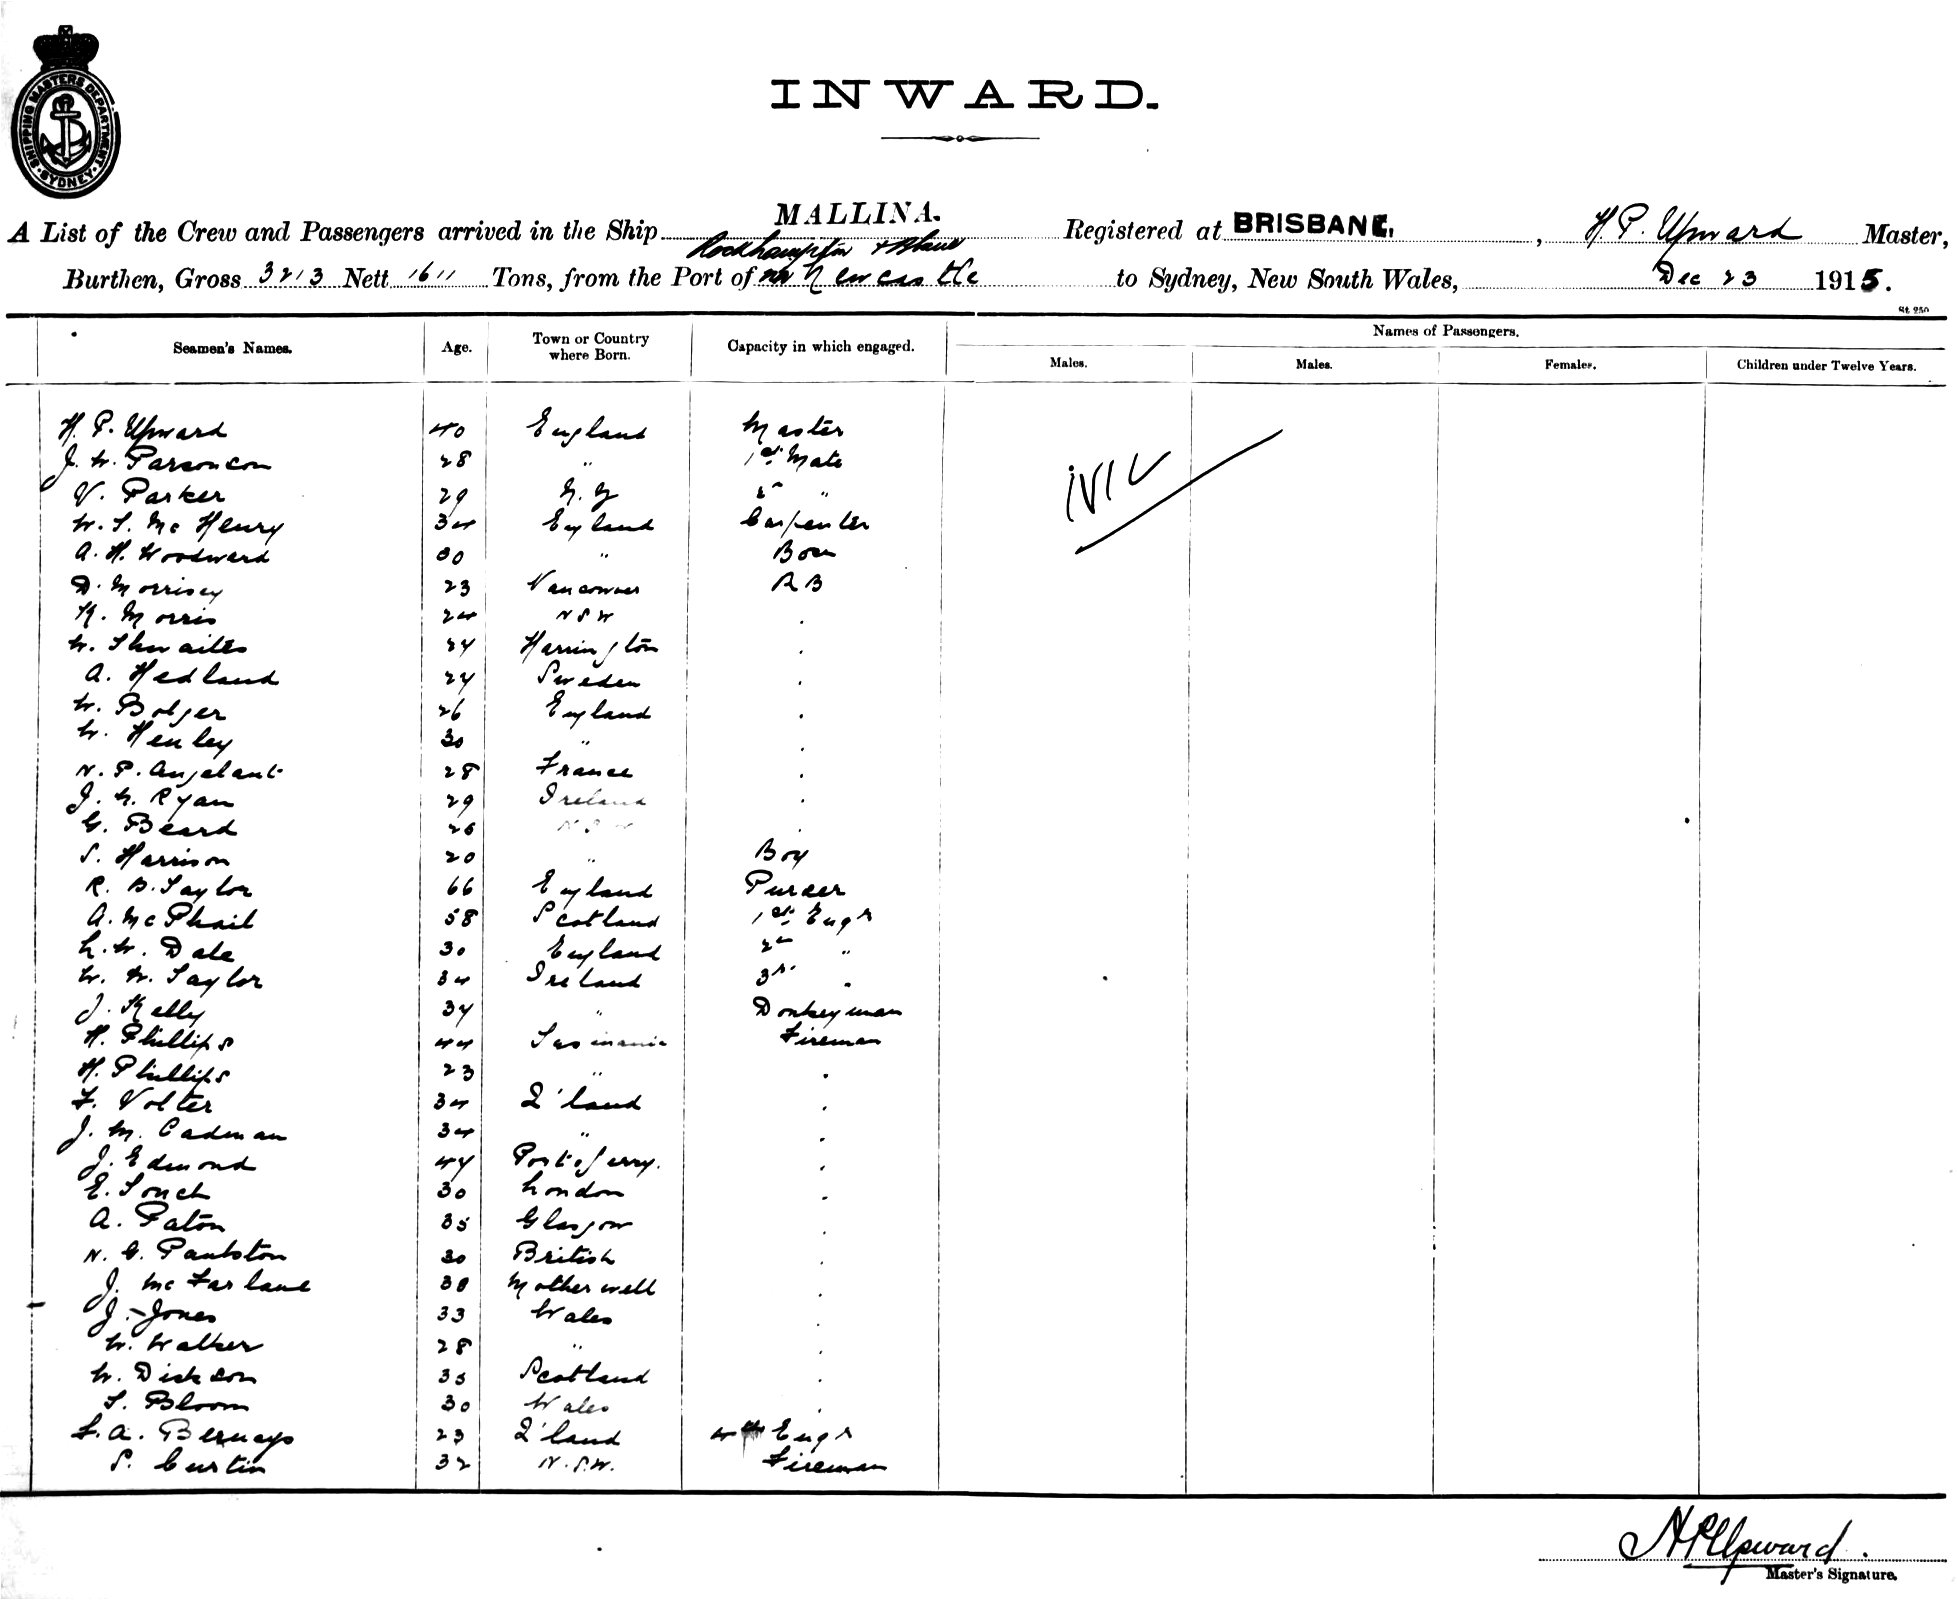 SHIPPING MASTERS DEPARTMENT · SYDNEY ·
INWARD.
A List of the Crew and Passengers arrived in the Ship MALLINA. Registered at BRISBANE, H. P. Upward Master,
Rockhampton +
Burthen, Gross 3213 Nett 1611 Tons, from the Port of Newcastle to Sydney, New South Wales, Dec 23 1915.
St 250
Seamen's Names. Age. Town or Country where Born. Capacity in which engaged. Names of Passengers.
Males. Males. Females. Children under Twelve Years.
H. P. Upward 40 England Master
J. W. Parsoncon 28 " 1st Mate
V. Parker 29 N. Z 2n "
W. T. Mc Henry 34 England Carpenter
A. H. Woodward 30 " Bosn
D. Morrisey 23 Vancouver A B
K. Morris 24 N S W .
W. Thwaites 24 Harrington .
A. Hedland 24 Sweden .
W. Bolger 26 England .
W. Henley 30 " .
N. P. Angelant 28 France .
J. W. Ryan 29 Ireland .
G. Beard 26 N. S. W .
S. Harrison 20 " Boy
R. B. Taylor 66 England Purser
A. McPhail 58 Scotland 1st Engr
L. W. Dale 30 England 2n "
W. W. Taylor 34 Ireland 3r "
J. Kelly 34 " Donkeyman
H. Phillips 44 Tasmania Fireman
H. Phillips 23 " .
F. Volter 34 Q'land .
J. M. Cadman 34 " .
J. Edmond 44 Portoferry. .
E. Souch 30 London .
A. Paton 35 Glasgow .
N. G. Paulston 30 British .
J. McFarlane 38 Motherwell .
J. Jones 33 Wales .
W. Walker 28 " .
W. Dickson 35 Scotland .
T. Bloom 30 Wales .
L. A. Bernays 23 Q'land 4th Engr
S. Curtin 32 N.S.W. Fireman
H P Upward.
Master's Signature.